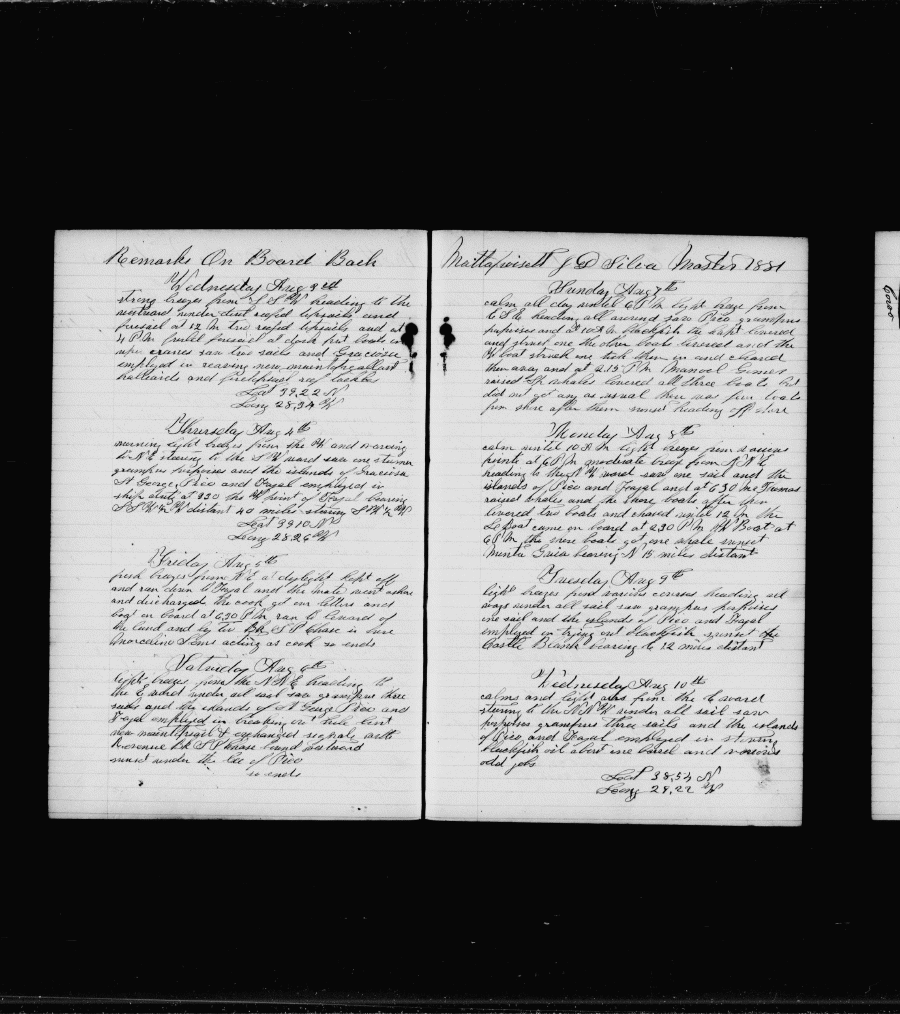 Remarks On Board Bark
Wednesday Aug 3rd
strong breezes from S S W heading to the
westward under dust reefed topsails and
foresail at 12 M two reefed topsails and at
4 P M furled foresail at dark put boats on
upper cranes saw two sails and Graciosa
employed in reaving new maintopgallant
halliards and foretopsail reef tackles
Lat 39.22 N
Long 28.34 W
Thursday Aug 4th
morning light breezes from the W and
to N E steering to the S W ward saw one steamer
grampus porpoises and the islands of Graciosa
St George Pico and Fayal employed in
ship duty at 930 the W point of Fayal bearing
S S W ½ W distant 40 miles steering S W ½ W
Lat 39.10 N
Long 28.26 W
Friday Aug 5th
fresh breezes from N E at daylight kept off
and ran down to Fayal and the mate went ashore
and discharged the cook got our letters and
boat on board at 630 P M ran to leward of
the land and by too Bk S P Chase is here
Marcelino Lomis acting as cook so ends
Saturday Aug 6th
light breezes from the N N E heading to
the E ward under all sail saw grampus three
sails and the islands of St George Pico and
Fayal employed in breaking out hole bent
new maintrysail & exchanged signals with
Revenue Bk S P Chase bound westward
sunset under the lee of Pico
so ends
Mattapoisett J D Silva Master 1881
Sunday Aug 7th
calm all day until 6 P M light breeze from
to S E heading all around saw Pico grampus
porpoises and at 10 A M blackfish the Larb lowered
and struck one the other boats lowered and the
W boat struck one took them in and cleared
them away and at 215 P M Manoel Gomes
raised Sp whales lowered all three boats but
did not get any as usual there was five boats
from shore after them sunset heading off shore
Monday Aug 8th
calm until 10 A M light breezes from various
points at 6 P M moderate breeze from N N E
heading to the N W ward saw one sail and the
islands of Pico and Fayal and at 630 the Thomas
raised whales and the shore boats after them
lowered two boats and chased until 12 M the
L Boat came on board at 230 P M W Boat at
6 P M the shore boats got one whale sunset
Punta Guia bearing N 15 miles distant
Tuesday Aug 9th
light breezes from various courses heading all
ways under all sail saw grampus porpoises
one sail and the islands of Pico and Fayal
employed in trying out blackfish sunset the
Castle Brank bearing to 12 miles distant
Wednesday Aug 10th
calms and light airs from the E ward
steering to the N N W under all sail saw
porpoises grampus three sails and the islands
of Pico and Fayal employed in stowing
blackfish oil about one barrel and various
odd jobs
Lat 38.54 N
Long 29.22 W